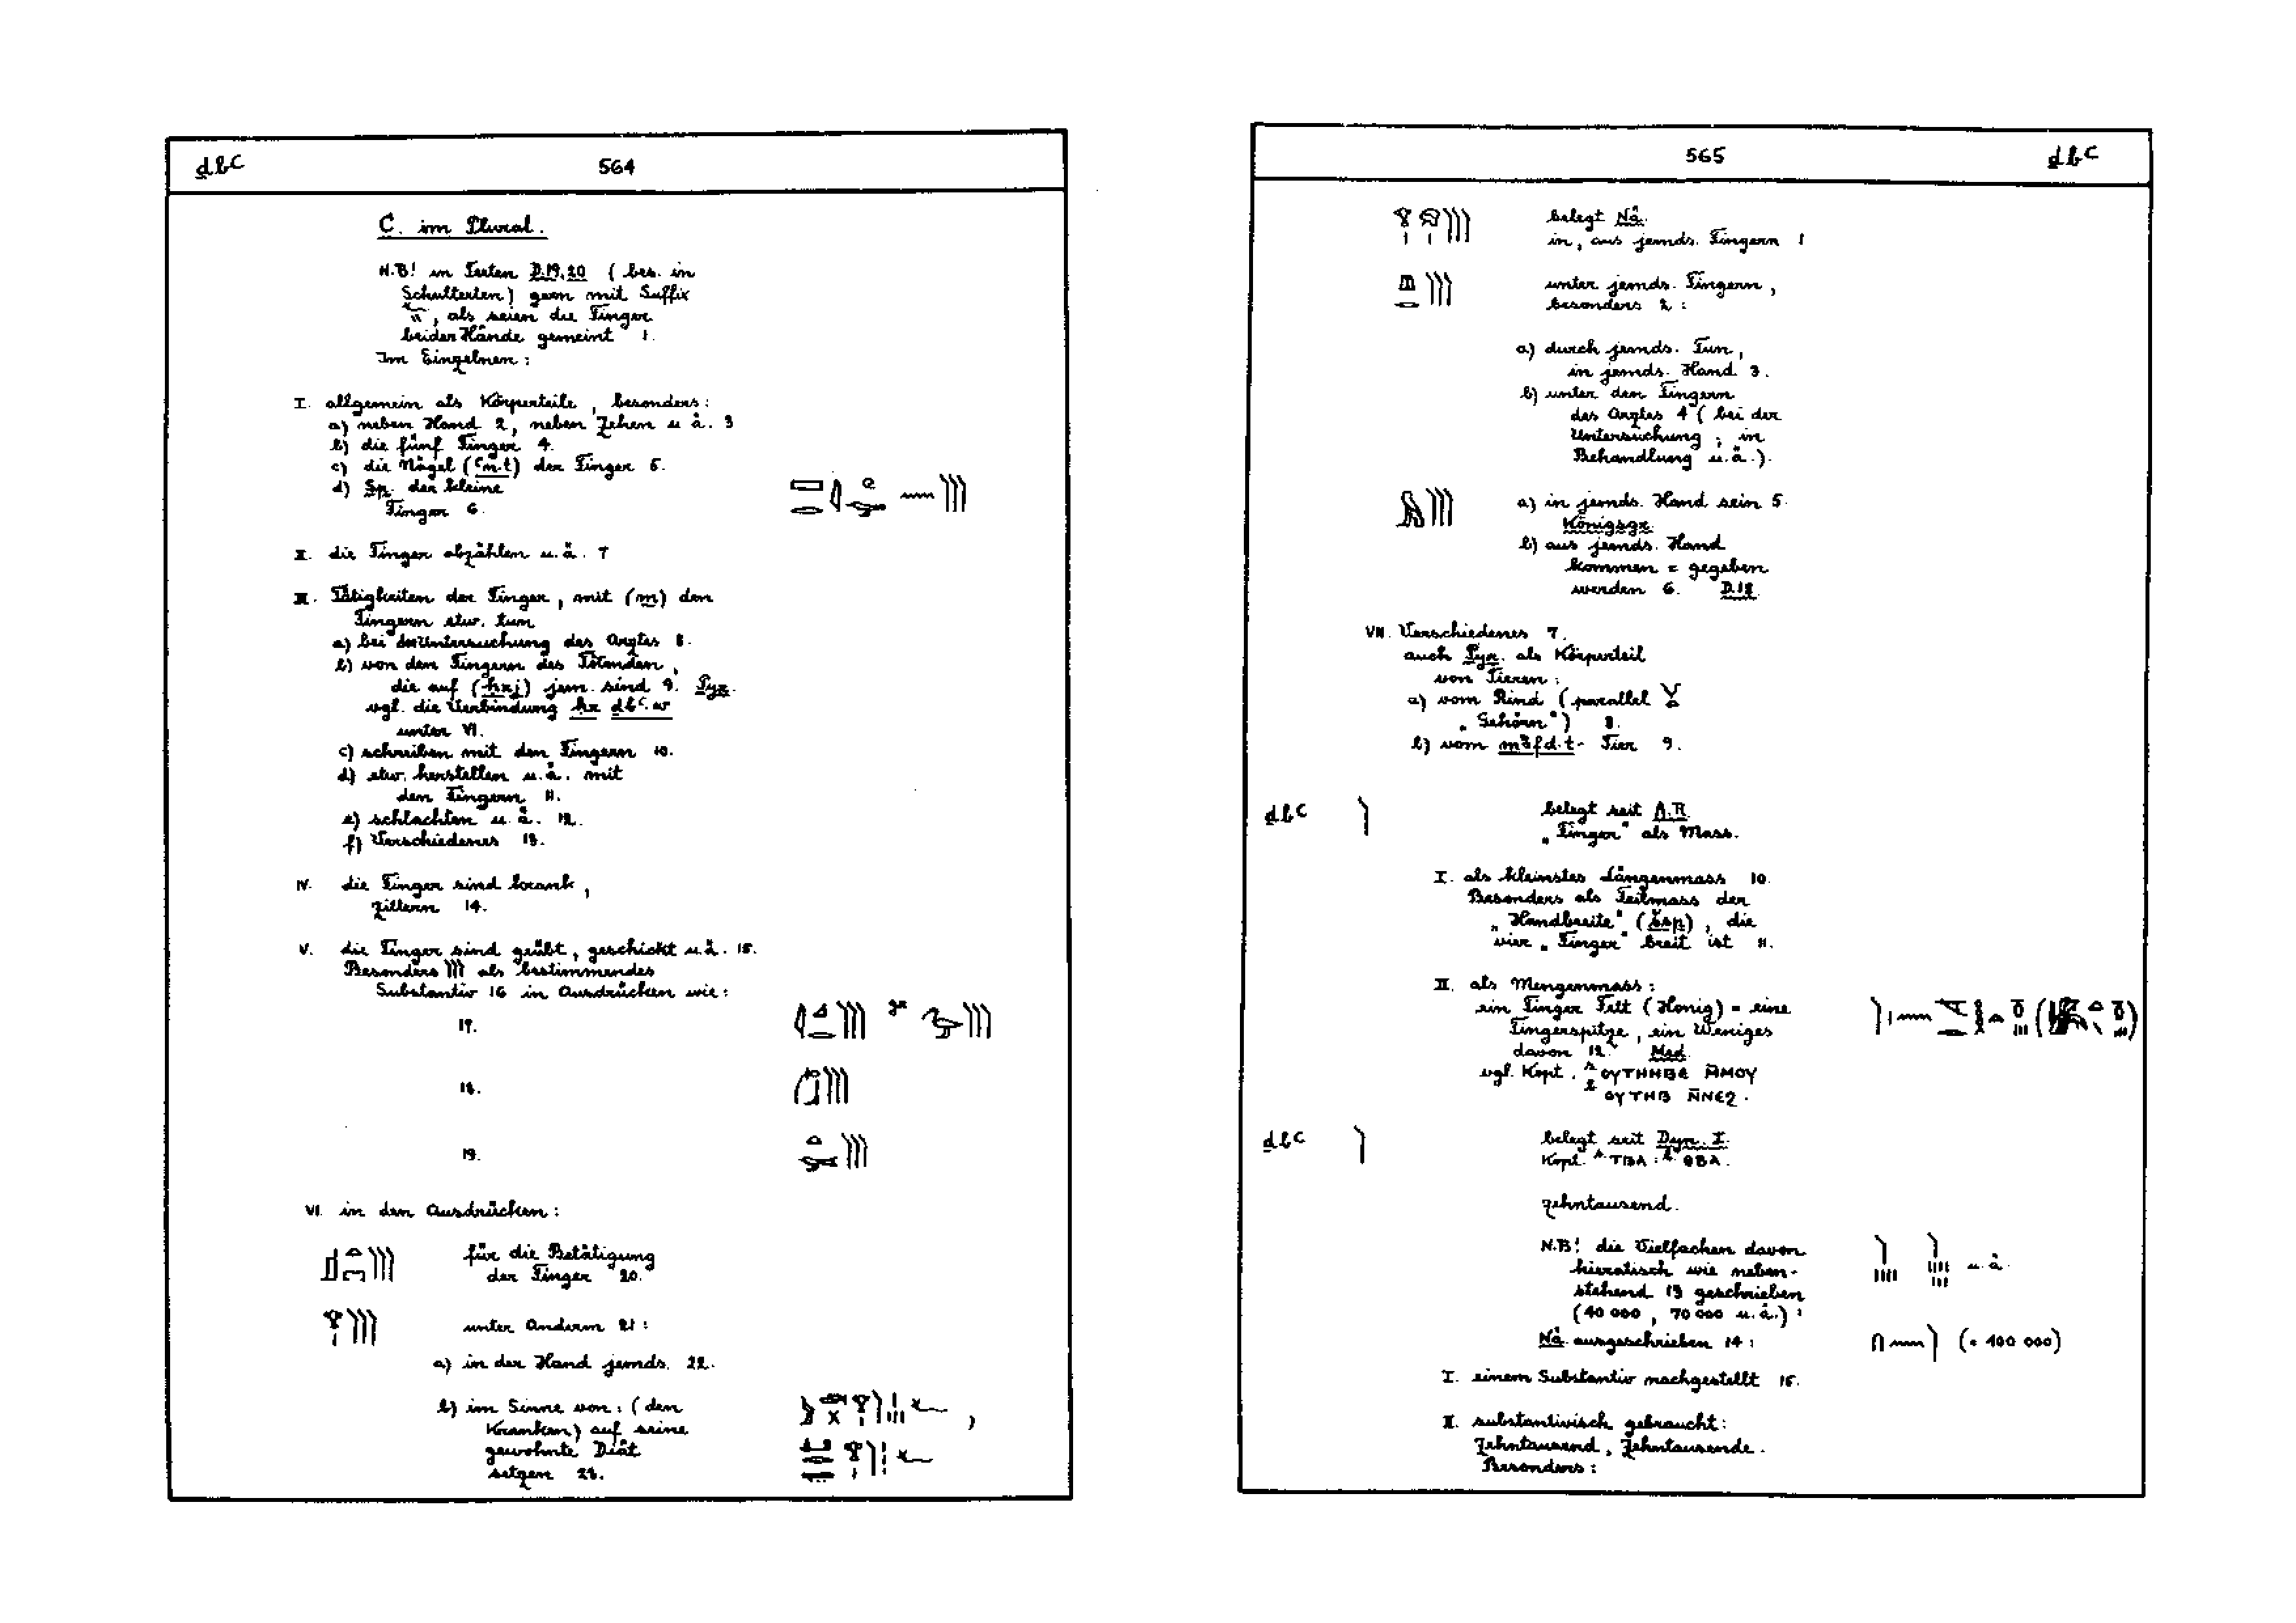 ḏbꜥ 564
C. im Plural.
N.B! in Texten D.19.20 (bes. in
Schultexten) gern mit Suffix
, als seien die Finger
beider Hände gemeint 1.
Im Einzelnen:
I. allgemein als Körperteile, besonders:
a) neben Hand 2, neben Zehen u ä. 3
b) die fünf Finger 4.
c) die Nägel (ꜥn.t) der Finger 5.
d) Sp. der kleine
Finger 6.
II. die Finger abzählen u.ä. 7
III. Tätigkeiten der Finger, mit (m) den
Fingern etw. tun
a) bei der Untersuchung des Arztes 8.
b) von den Fingern des Tötenden,
die auf (ḥrj) jem. sind 9. Pyr.
vgl. die Verbindung ḥr ḏbꜥ.w
unter VI.
c) schreiben mit den Fingern 10.
d) etw. herstellen u.ä. mit
den Fingern 11.
e) schlachten u.ä. 12.
f) Verschiedenes 13.
IV. die Finger sind krank,
zittern 14.
V. die Finger sind geübt, geschickt u.ä. 15.
Besonders 𓂭𓂭𓂭 als bestimmendes
Substantiv 16 in Ausdrücken wie:
17.
18.
19.
VI. in den Ausdrücken:
für die Betätigung
der Finger 20.
unter Anderm 21:
a) in der Hand jemds. 22.
b) im Sinne von: (den
Kranken) auf seine
gewohnte Diät
setzen 23.
565 ḏbꜥ
belegt Nä.
in, aus jemds. Fingern 1
unter jemds. Fingern,
besonders 2:
a) durch jemds. Tun,
in jemds. Hand 3.
b) unter den Fingern
des Arztes 4 (bei der
Untersuchung, in
Behandlung u.ä.).
a) in jemds. Hand sein 5.
Königsgr.
b) aus jemds. Hand
kommen = gegeben
werden 6. D.18.
VII. Verschiedenes 7.
auch Pyr. als Körperteil
von Tieren:
a) vom Rind (parallel
„Gehörn“) 8.
b) vom mꜣfd.t- Tier 9.
ḏbꜥ 𓂭 belegt seit A.R.
„Finger“ als Mass.
I. als kleinstes Längenmass 10.
Besonders als Teilmass der
„Handbreite“ (šsp), die
vier „Finger“ breit ist 11.
II. als Mengenmass:
ein Finger Fett (Honig) = eine
Fingerspitze, ein Weniges
davon 12. Med.
vgl. Kopt. ⲟⲩⲧⲏⲏⲃⲉ ⲙ̄ⲙⲟⲩ
ⲟⲩⲧⲏⲃ ⲛ̄ⲛⲉϩ.
ḏbꜥ 𓂭 belegt seit Dyn. I.
Kopt. ⲧⲃⲁ : ⲑⲃⲁ.
zehntausend.
N.B! die Vielfachen davon
hieratisch wie neben- u.ä.
stehend 13 geschrieben
(40 000, 70 000 u.ä.):
Nä. ausgeschrieben 14: 𓎆 𓈖 𓂭 (= 100 000)
I. einem Substantiv nachgestellt 15.
II. substantivisch gebraucht:
Zehntausend, Zehntausende.
Besonders: